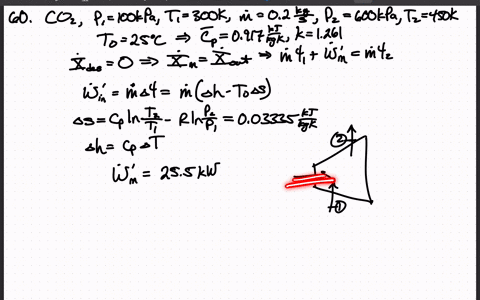 60. CO₂, P₁=100kPa, T₁=300K, ṁ=0.2 kg/s, P₂=600kPa, T₂=450K
T₀=25°C ⇒ C̄p=0.917 kJ/kgK, k=1.261
Ẋdes=0 ⇒ Ẋin=Ẋout ⇒ ṁψ₁+Ẇ'in=ṁψ₂
Ẇ'in=ṁΔψ=ṁ(Δh-T₀Δs)
Δs=Cp ln T₂/T₁ - R ln P₂/P₁=0.03335 kJ/kgK
Δh=CpΔT
Ẇ'in=25.5kW
②
①